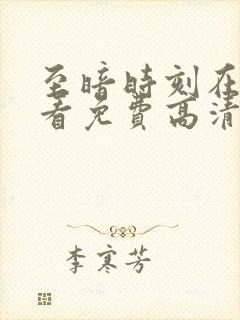 至暗時刻在
看免費高清
李寒芳